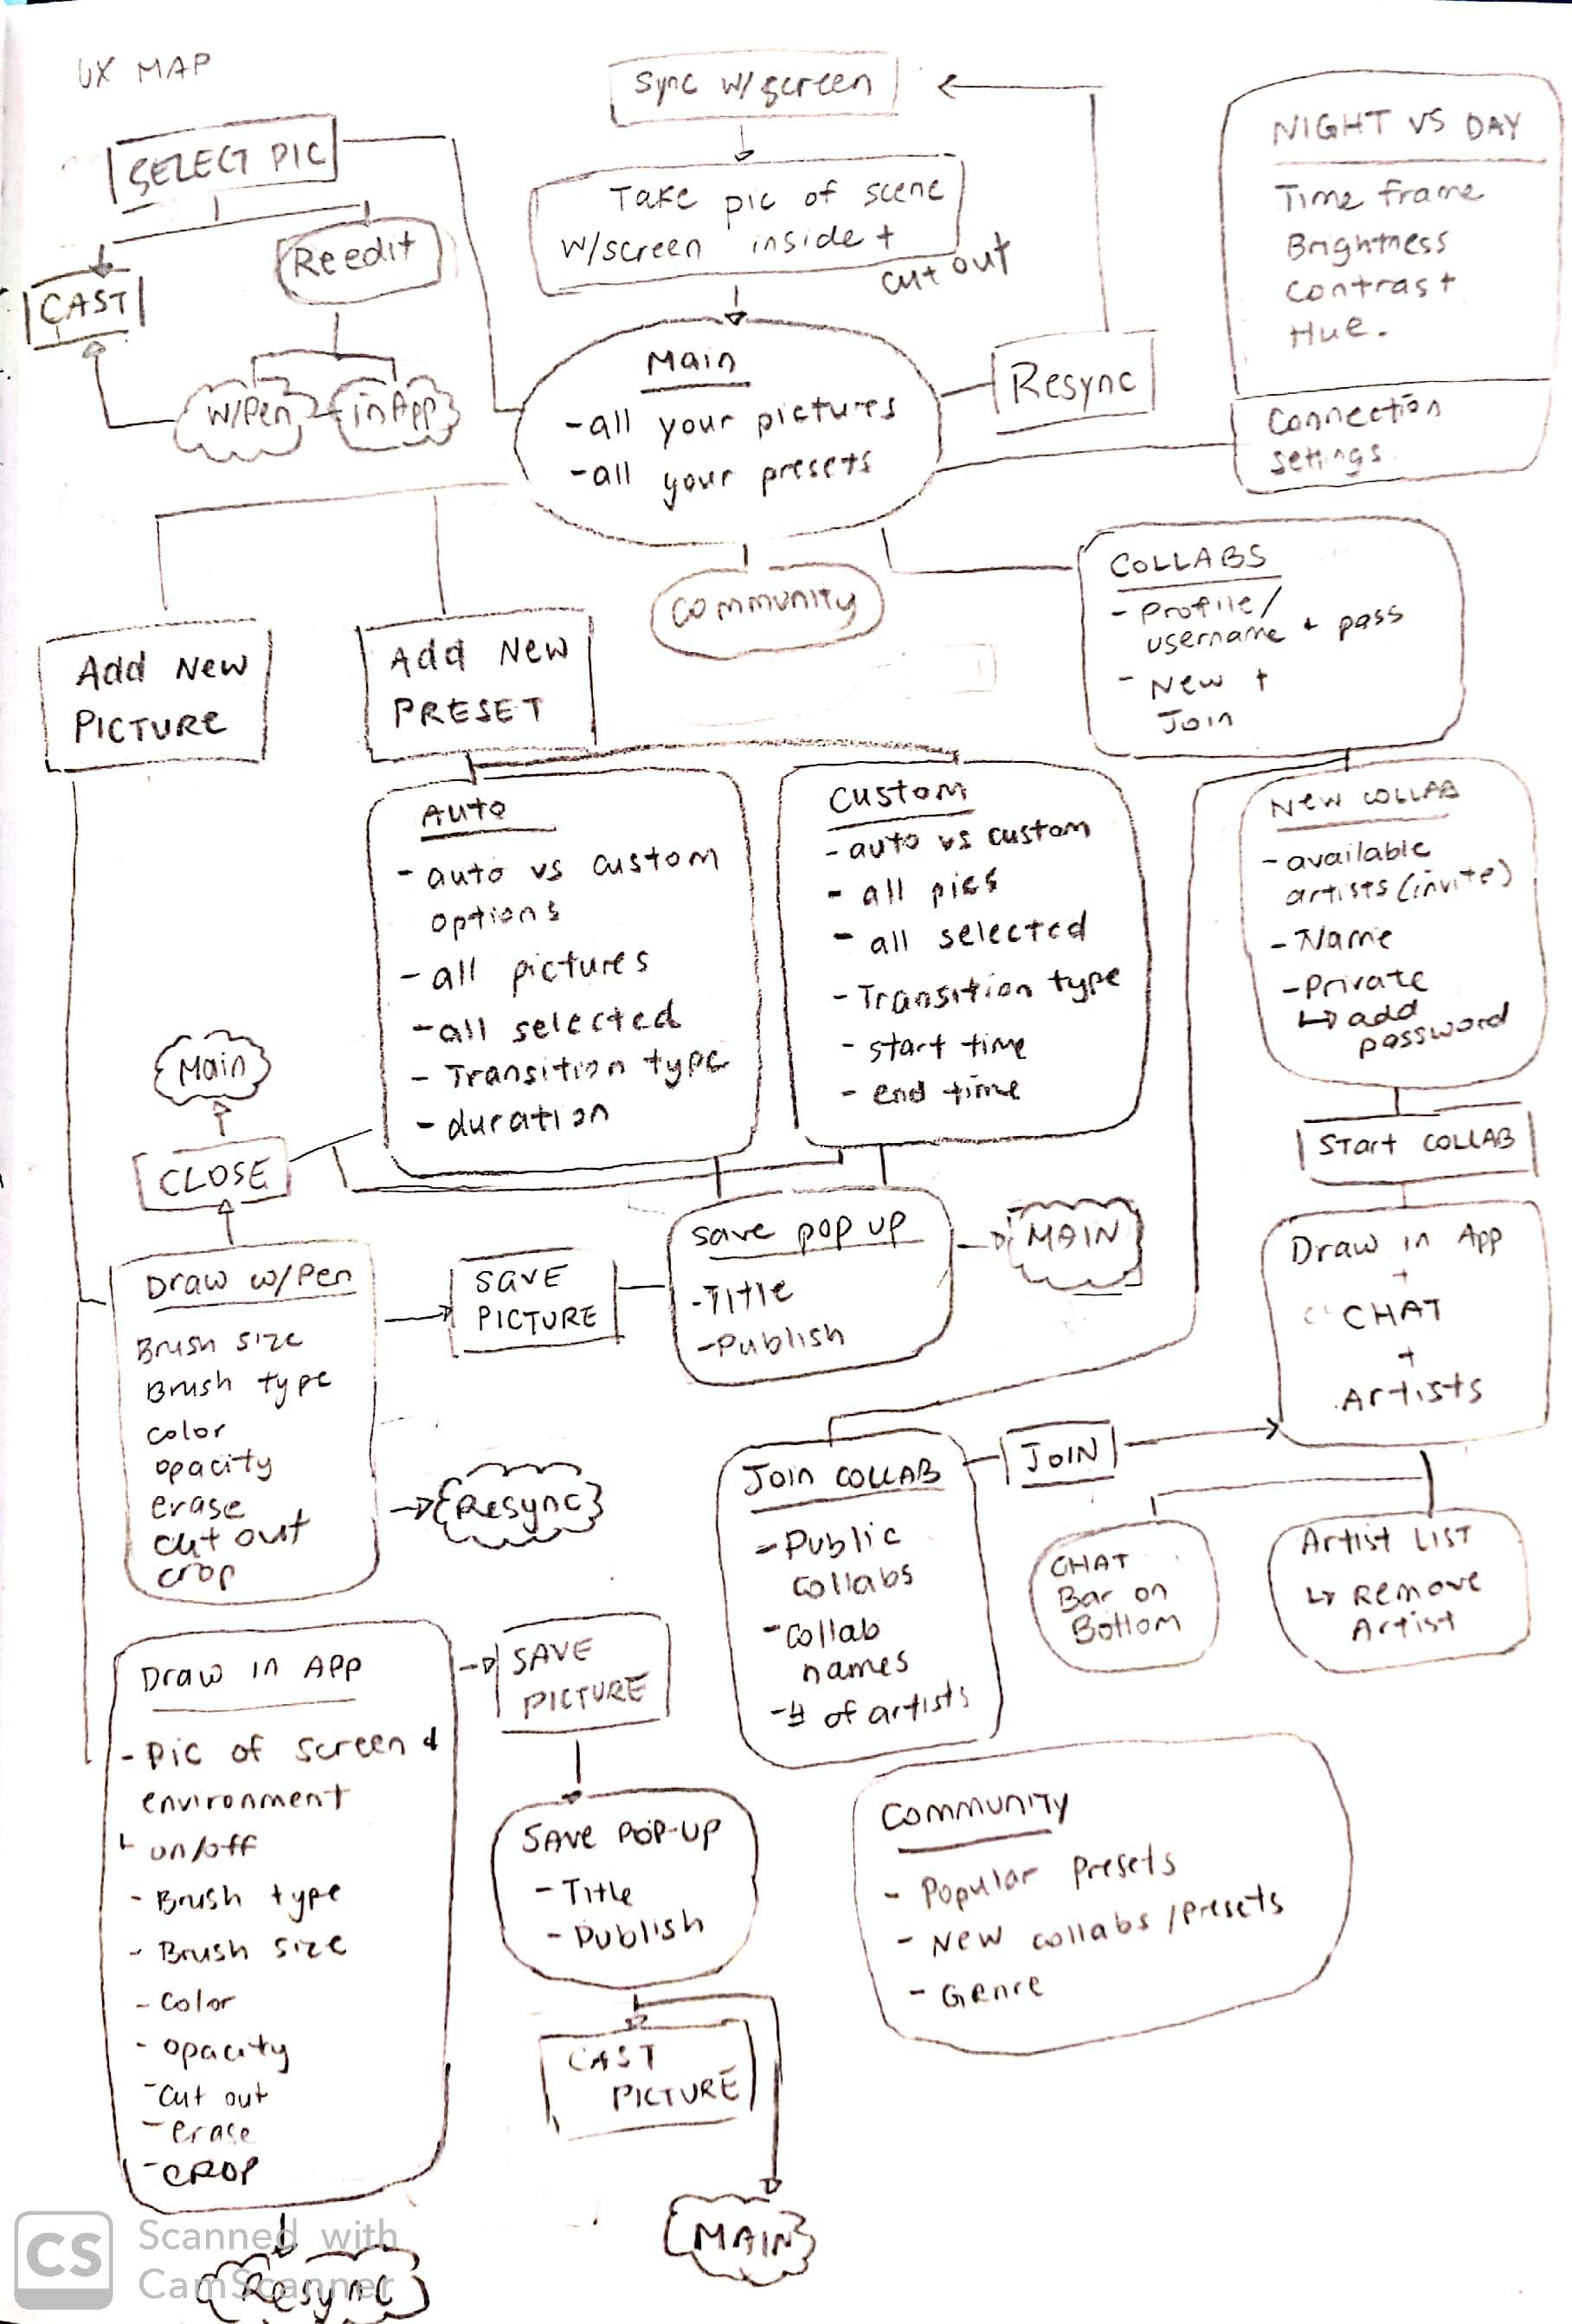 UX MAP
Sync w/screen
Take pic of scene
w/screen inside +
cut out
SELECT PIC
CAST
Reedit
w/Pen
inApp
Main
-all your pictures
-all your presets
Resync
NIGHT VS DAY
Time frame
Brightness
Contrast
Hue.
Connection
settings
Community
COLLABS
- Profile/
username + pass
- New +
Join
Add New
PICTURE
Add New
PRESET
Auto
- auto vs custom
options
- all pictures
- all selected
- Transition type
- duration
Custom
- auto vs custom
- all pics
- all selected
- Transition type
- start time
- end time
New COLLAB
- available
artists (invite)
- Name
- Private
↳ add
password
Start COLLAB
Main
CLOSE
Draw w/Pen
Brush size
Brush type
color
opacity
erase
cut out
crop
SAVE
PICTURE
save pop up
- Title
- Publish
MAIN
Draw in App
+
CHAT
+
Artists
Resync
JOIN COLLAB
- Public
collabs
- collab
names
- # of artists
JOIN
CHAT
Bar on
Bottom
Artist LIST
↳ Remove
Artist
Draw in App
- Pic of screen +
environment
↳ on/off
- Brush type
- Brush size
- Color
- opacity
- cut out
- erase
- CROP
SAVE
PICTURE
SAVE POP-UP
- Title
- Publish
CAST
PICTURE
MAIN
Community
- Popular Presets
- New collabs/presets
- Genre
Resync
CS Scanned with
CamScanner